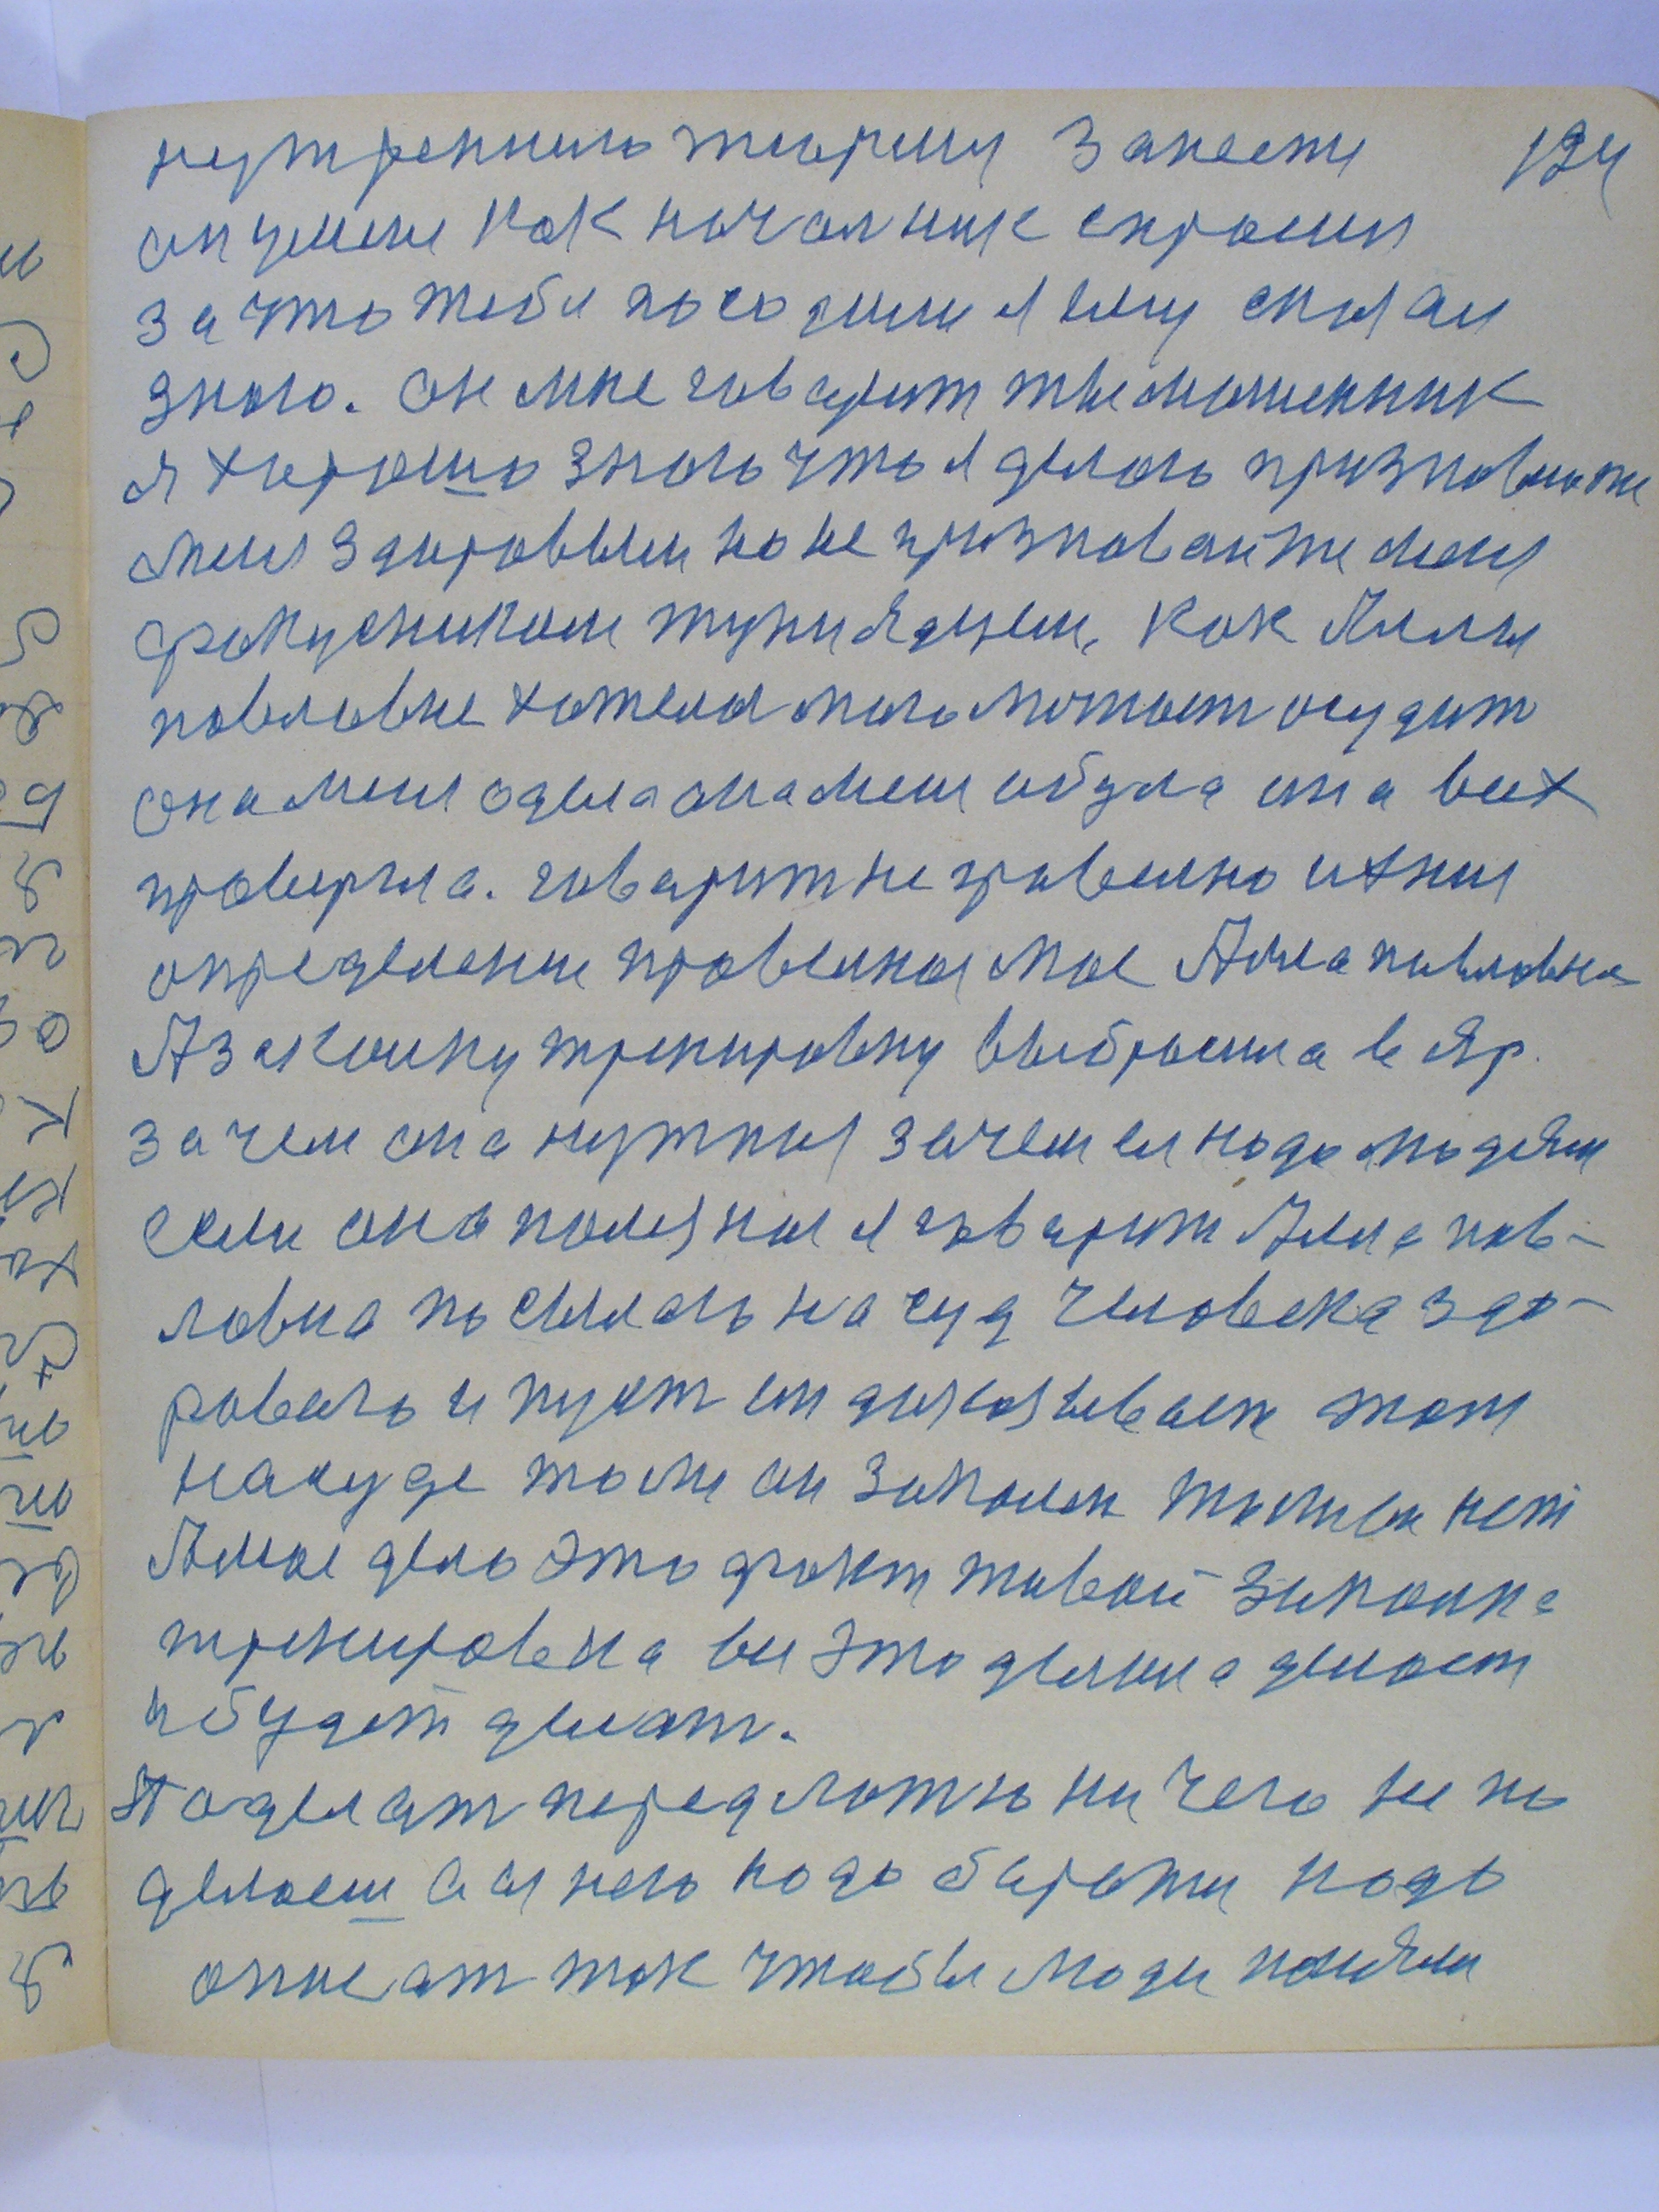 нутрению тюрму Занести 124
он умене как начальник спросил
за что тебя посодили я ему сказал
знаю. он мне говарит ты мошенник
я хорошо знаю что я делаю признавайте
меня здоровым но не признавайте меня
фокусником туниядцем, как Алла
павловне хотела мою мотает осудит
она меня одела она меня обула она всех
проверила. говарит не правелно ихния
определение правелная мое Алла павловна
А закалку тренировку выбросила в яр.
зачем она нужная зачем ея надо людям
если она полезная я говарит Алла пав-
ловна посылаю на суд человека здо-
роваго и пуст он доказывает там
на суде то ли он закален то ли ен нет
А мое дело это факт живой закалка
тренировка вы это делала делает
и будет делат.
Та оделат перед ложю ни чего не по
делаеш а за него надо боротя надо
описат так чтобы люди поняли